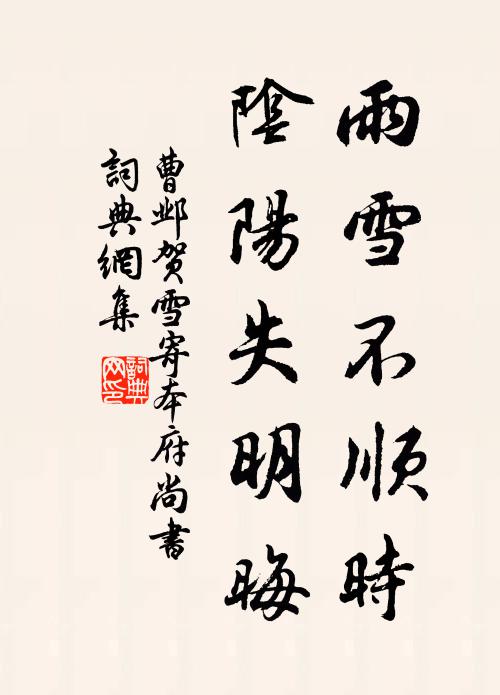 雨雪不順時
陰陽失明晦
曹邺贺雪寄本府尚書
詞典網集
詞典网印